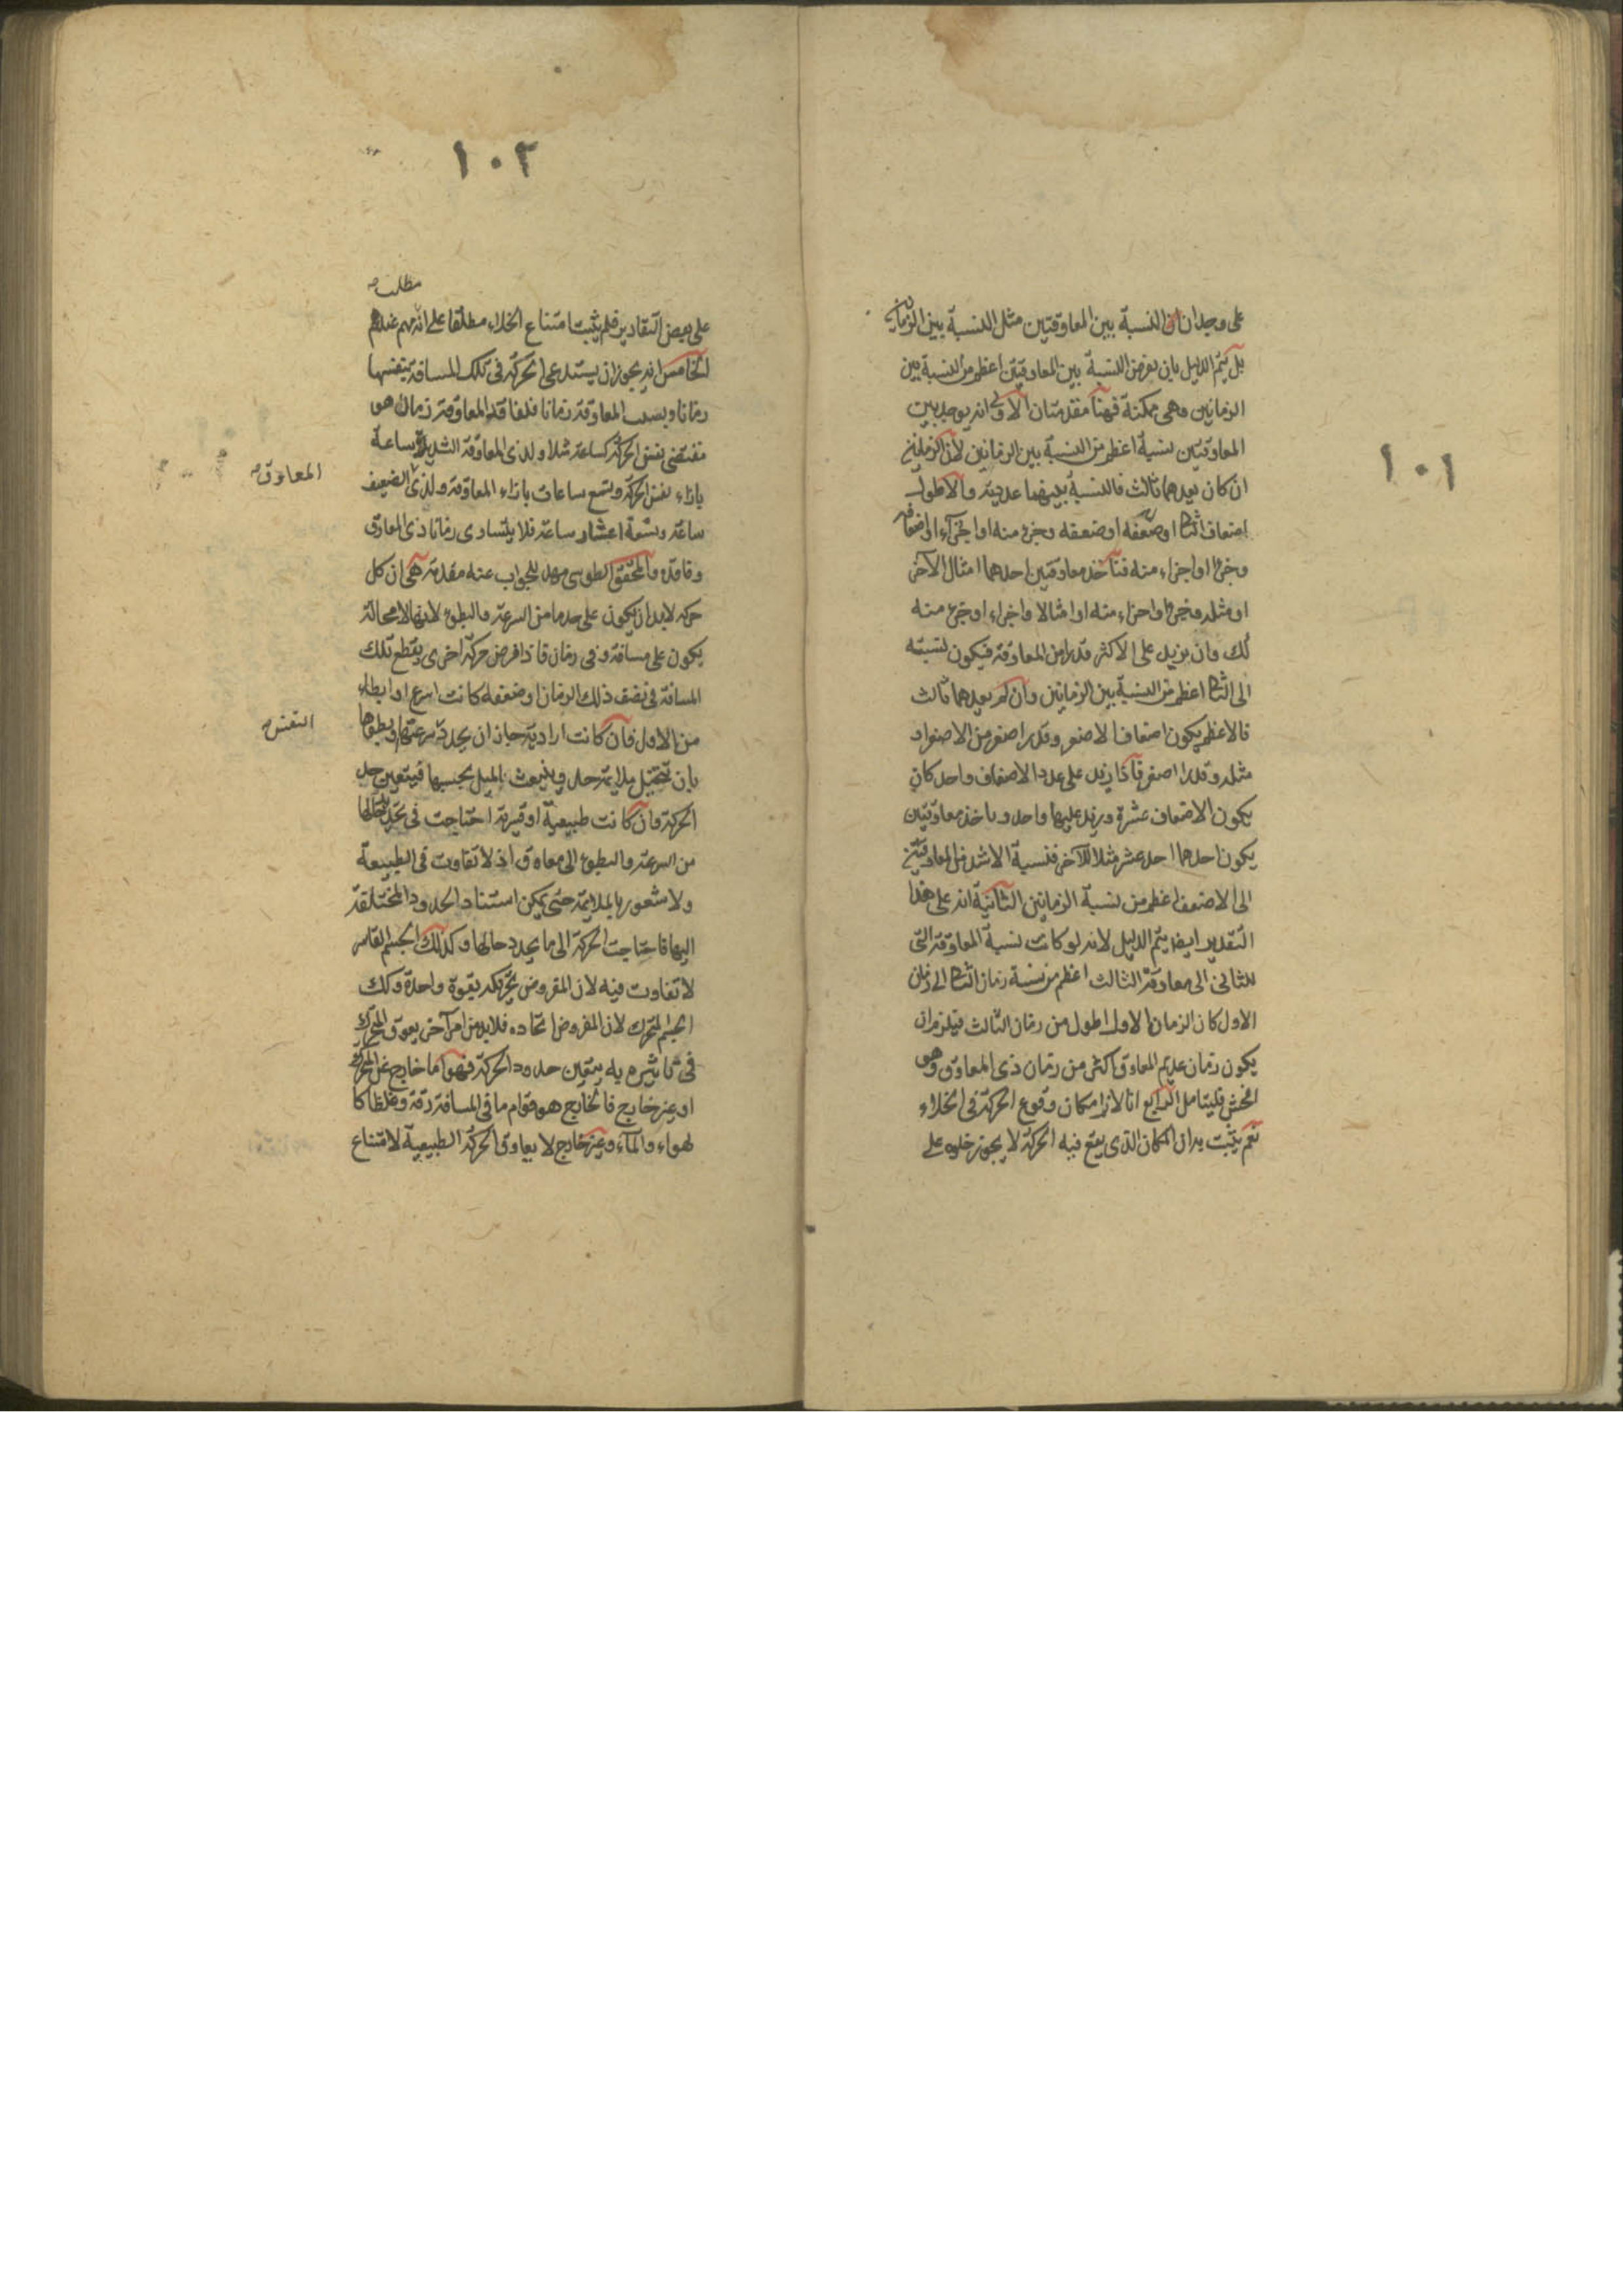 ١٠١
على وجدان ان النسبة بين المعاوقتين مثل النسبة بين الزمانين
بل يتم الدليل بان نفرض النسبة بين المعاوقتين اعظم من النسبة بين
الزمانين وهى ممكنة فهنا مقدمتان الاولى انه يوجد بين
المعاوقتين نسبة اعظم من النسبة بين الزمانين لان الزمانين
ان كان يعدهما ثالث فالنسبة بينهما عددية والاطول
اضعاف الثا او ضعفه او ضعفه وجزء منه او اجزآء او اضعافه
وجزء او اجزاء منه فنأخذ معاوقتين احدهما امثال الآخر
او مثله وجزء او اجزاء منه او امثالا واجزاء او جزء منه
كك وان يزيد على الاكثر قدرا من المعاوقة فيكون نسبته
الى الثا اعظم من النسبة بين الزمانين وان لم يعدهما ثالث
فالاعظم يكون اضعافا لاصغر وقدرا اصغر من الاصغر او
مثله وقدرا اصغر فاذا زيد على عدد الاضعاف واحد كان
يكون الاضعاف عشرة ويزيد عليها واحد وياخذ معاوقتين
يكون احدهما احد عشر مثلا للآخر فنسبة الاشد من المعاوقتين
الى الاضعف اعظم من نسبة الزمانين الثانية انه على هذا
التقدير ايضا يتم الدليل لانه لو كانت نسبة المعاوقة التى
للثانى الى معاوقة الثالث اعظم من نسبة زمان الثا الى زمان
الاول كان الزمان الاول اطول من زمان الثالث فيلزم ان
يكون زمان عديم المعاوق اكثر من زمان ذى المعاوق وهو
افحش فليتامل الرابع انا لانم امكان وقوع الحركة فى الخلاء
نعم يثبت به ان المكان الذى يقع فيه الحركة لا يجوز خلوه على
١٠٢
مطلب
على بعض التقادير فلم يثبت امتناع الخلاء مطلقا على انه مهم عندهم
الخامس انه يجوز ان يستدعى الحركة فى تلك المسافة بنفسها
زمانا وبسبب المعاوقة زمانا فلفاقد المعاوقة زمان هو
مقتضى نفس الحركة كساعة مثلا ولذى المعاوقة الشديدة ساعة
بازاء نفس الحركة وتسع ساعات بازاء المعاوقة ولذى الضعيف
ساعة وتسعة اعشار ساعة فلا يتساوى زمانا ذى المعاوق
وفاقده والمحقق الطوسى مهد للجواب عنه مقدمة هى ان كل
حركة لابد ان يكون على حد ما من السرعة والبطوء لانها لا محالة
يكون على مسافة وفى زمان فاذا فرض حركة اخرى يقطع تلك
المسافة فى نصف ذلك الزمان او ضعفه كانت اسرع او ابطاء
من الاول فان كانت ارادية جاز ان يحدد سرعتها وبطوها
بان تتخيل ملايمة حد وينبعث الميل بحسبها فيتعين حد
الحركة وان كانت طبيعية او قسرية احتاجت فى تحديد حالها
من السرعة والبطوء الى معاوق اذ لا تفاوت فى الطبيعة
ولا شعور بالملايمة حتى يمكن استناد الحدود المختلفة
اليها فاحتاجت الحركة الى ما يحدد حالها وكذلك الجسم القاسر
لا تفاوت فيه لان المفروض تحريكه بقوة واحدة وكك
الجسم المتحرك لان المفروض اتحاده فلابد من امر آخر يعوق المحرك
فى تاثيره به يتعين حدود الحركة فهو اما خارج عن المتحرك
او غير خارج فالخارج هو قوام ما فى المسافة رقة وغلظا كا
لهواء والمآء وغير خارج لا يعاوق الحركة الطبيعية لامتناع
المعاوق
النفس